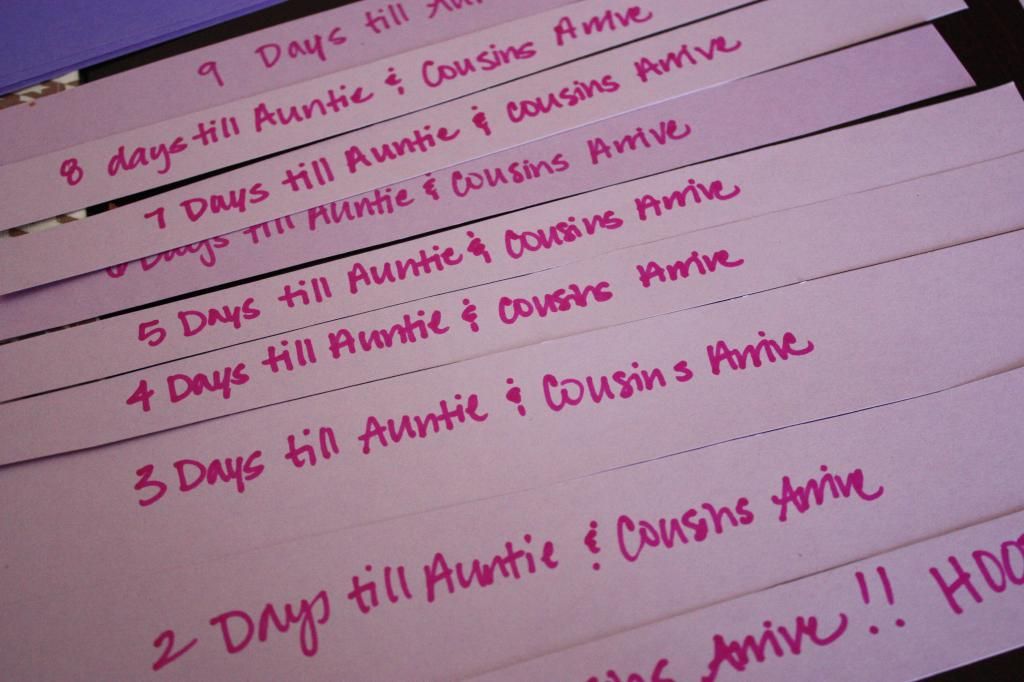 9 Days till
8 days till Auntie & Cousins Arrive
7 Days till Auntie & cousins Arrive
6 Days till Auntie & Cousins Arrive
5 Days till Auntie & Cousins Arrive
4 Days till Auntie & cousins Arrive
3 Days till Auntie & Cousins Arrive
2 Days till Auntie & Cousins Arrive
Arrive!!